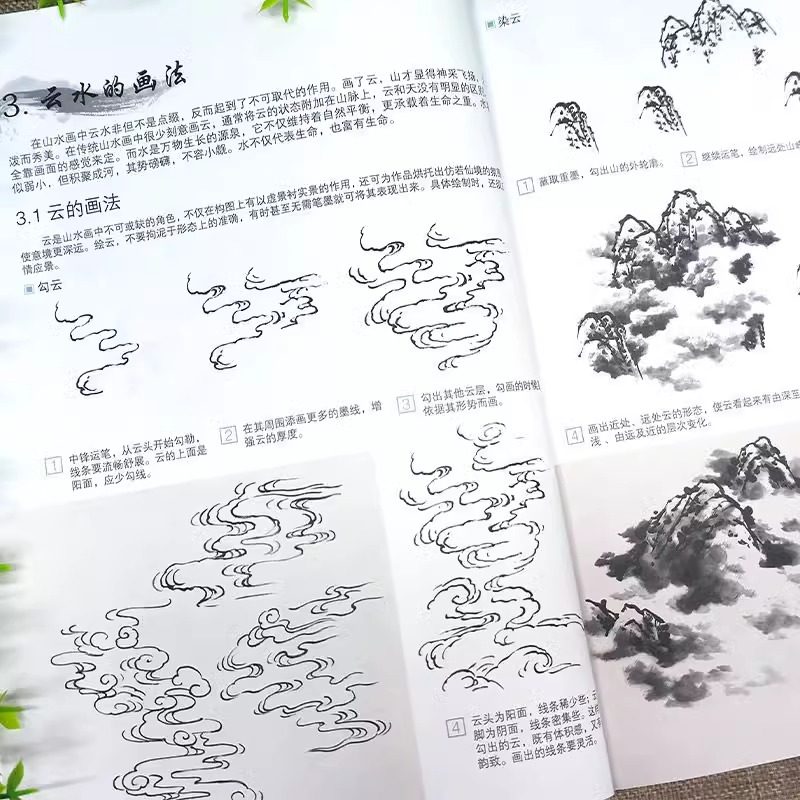 3. 云水的画法
在山水画中云水非但不是点缀，反而起到了不可取代的作用。画了云，山才显得神采飞扬，
泼而秀美。在传统山水画中很少刻意画云，通常将云的状态附加在山脉上，云和天没有明显的区别，
全靠画面的感觉来定。而水是万物生长的源泉，它不仅维持着自然平衡，更承载着生命之重。水
似弱小，但积聚成河，其势磅礴，不容小觑。水不仅代表生命，也富有生命。
3.1 云的画法
云是山水画中不可或缺的角色，不仅在构图上有以虚景衬实景的作用，还可为作品烘托出仿若仙境的
使意境更深远。绘云，不要拘泥于形态上的准确，有时甚至无需笔墨就可将其表现出来。具体绘制时，还
情应景。
勾云
1 中锋运笔，从云头开始勾勒，
线条要流畅舒展。云的上面是
阳面，应少勾线。
2 在其周围添画更多的墨线，增
强云的厚度。
3 勾出其他云层，勾画的时候
依据其形势而画。
4 云头为阳面，线条稀少些；云
脚为阴面，线条密集些。这
勾出的云，既有体积感，又
韵致。画出的线条要灵活。
染云
1 蘸取重墨，勾出山的外轮廓。
2 继续运笔，绘制远处山
4 画出近处、远处云的形态，使云看起来有由深至
浅、由远及近的层次变化。